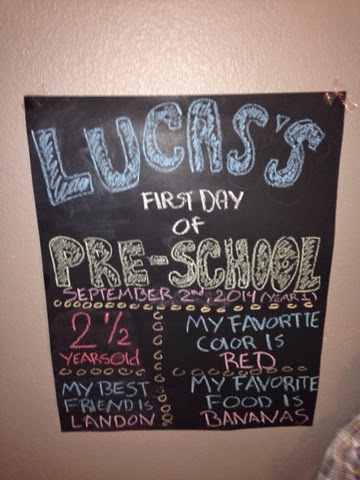 LUCAS'S
FIRST DAY
OF
PRE-SCHOOL
SEPTEMBER 2nd, 2014 (YEAR 1)
2 ½
YEARS Old
MY FAVORTIE
COlOR IS
RED
MY BEST
FRIEND IS
LANDON
MY FAVORITE
FOOD IS
BANANAS